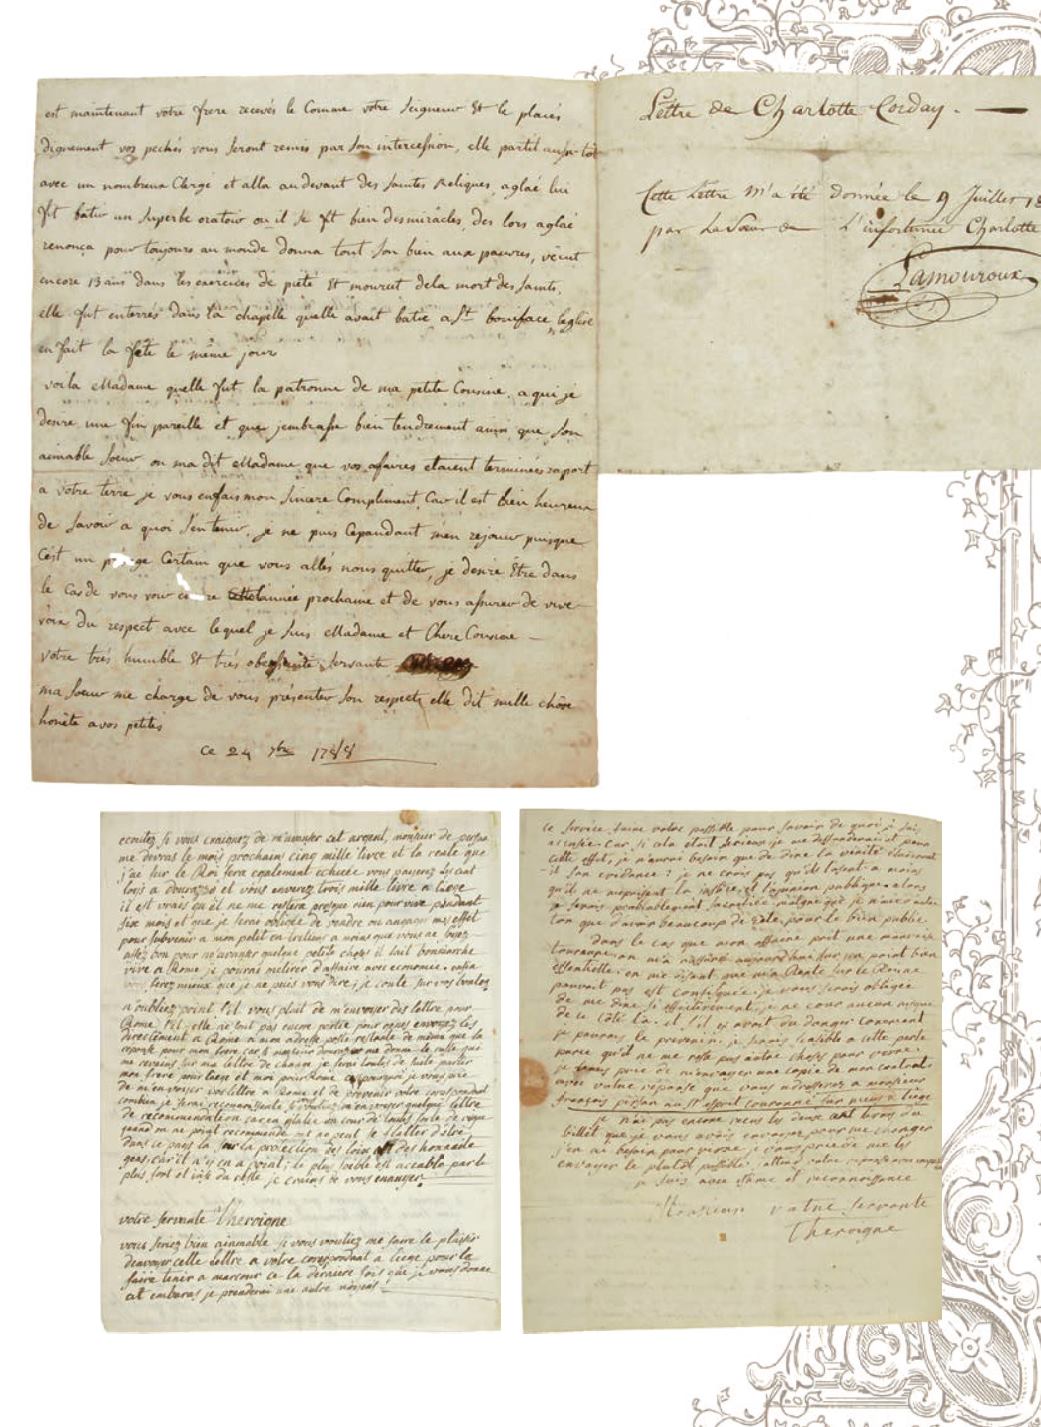 est maintenant votre frere recevés le Comme votre Seigneur Et le placés
dignement vos pechés vous seront remis par son intercession, elle partit aussi-tôt
avec un nombreux Clergé et alla au devant des saintes Reliques, aglaé lui
fit batir un superbe oratoir ou il se fit bien des miracles, des lors aglaé
renonça pour toujours au monde donna tout son bien aux pauvres, vécut
encore 13 ans dans les exercices de pieté Et mourut de la mort des saints,
elle fut enterrés dans la chapelle quelle avait batie a St boniface leglise
en fait la fête le même jour
voila Madame quelle fut la patronne de ma petite Cousine, a qui je
desire une fin pareille et que jembrasse bien tendrement ainsi que son
aimable soeur on ma dit Madame que vos afaires etaient terminées raport
a votre terre je vous en fais mon sincere Compliment, Car il est bien heureux
de savoir a quoi s'en tenir, je ne puis Cependant m'en rejouir puisque
c'est un certain que vous allés nous quitter, je desire être dans
le cas de vous voir lannée prochaine et de vous assurer de vive
voix du respect avec lequel je suis Madame et Chere Cousine
votre trés humble Et trés obeissante servante
ma soeur me charge de vous présenter son respect, elle dit mille chôse
honête a vos petites
ce 24 7bre 1788
Lettre de Charlotte Corday.
Cette Lettre m'a été donnée le 9 Juillet 18
par La Soeur de L'infortunée Charlotte
Lamouroux
ecoutez, si vous craignez de m'avancer cet argent, monsieur de
me devras le mois prochain cinq mille livre et la rente que
j'ai sur le Roi sera egalement echuée vous payerez
louis a et vous enverez trois mille livre a liege
il est vrais qu'il ne me restera presque rien pour vivre pendant
six mois et que je serai obligée de vendre ou angager mes effet
pour subvenir a mon petit entretien a moins que vous ne soyez
assez bon pour m'avancer quelque petite chose il fait bon marche
vivre a Rome je pourai me tirer d'affaire avec economie. enfin
vous ferez mieux que je ne puis vous dire; je conte sur vos bontez
n'oubliez point s'il vous plait de m'envoyer des lettre pour
Rome. s'il elle ne sont pas encore partie pour envoyez les
directement a Rome a mon adresse poste restante de même que la
reponse pour mon frere car si monsieur me donne le reste qui
me reviens sur ma lettre de change je serai toutes de suite partir
mon frere pour liege et moi pour Rome pourquoi je vous prie
de m'envoyer vos lettre a Rome et de prevenir votre corespondant
combien je serai reconnaissante si vouliez m'envoyer quelque lettre
de recommendation car en italie on cour de toute sorte de risque
quand on ne point recommendé on ne peut se flatter d'être
dans ce pays la sur la protection des loix des honnaite
gens, car il n'y en a point; le plus foible est accablé par le
plus fort et du reste je crains de vous enuuyer.
votre servante Theroigne
vous seriez bien ainmable si vous vouliez me faire le plaisir
d'envoyer cette lettre a votre corespondant a liege pour la
faire tenir a marcour ce la derniere fois que je vous donne
cet embaras je prenderai une autre
ce service, faire votre possible pour savoir de quoi je suis
accusée. car, si cela etait serieux je me deffenderai et pour
cette effet, je n'aurai besoin que de dire la vérité
il son evidence? je ne crois pas qu'ils l'osent a moins
qu'ils ne méprisent la justice, et l'opinion publique. alors
je serois probablement sacrifiée malgré que je n'aie d'autre
ton que d'avoir beaucoup de zele, pour le bien public.
dans le cas que mon affaire prit une mauvaise
tournure, on m'a rassurée aujourd'hui sur un point bien
essentielle. en me disant que ma Rente sur le Roi ne
pouvait pas est confisquée. je vous serois obligée
de me dire si effectivement, je ne cour aucun risque
de ce côté là. et s'il y avoit du danger comment
je pourois le prevenir. je serois sensible a cette perte
parce qu'il ne me reste pas autre choses pour vivre.
je vous prie de m'envoyer une copie de mon contrats
avec votre réponse que vous adresserez a monsieur
françois pirson au St esprit couronné sur meuse à liège
je n'ai pas encore recus les deux cent livres du
billet que je vous avois envoyez pour me changer
j'en ai besoin pour vivre je vous prie de me les
envoyer le plutôt possible. j'attens votre reponse
je suis avec estime et reconnoissance
Monsieur votre servante
Theroigne